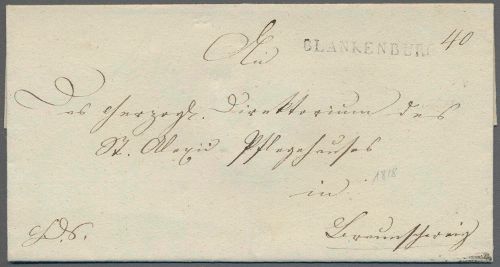 An BLANKENBURG 40
Das Herzogl. Direktorium des
St. Alexii Pflegehauses
in
1818
H. D. S. Braunschweig